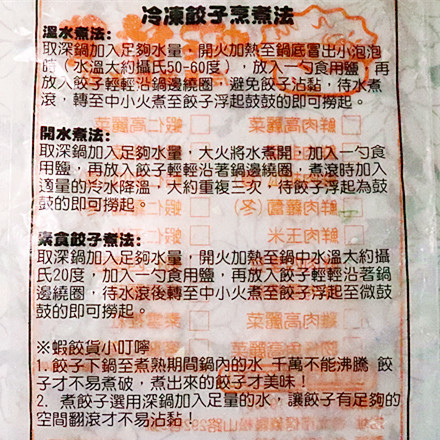 冷凍餃子烹煮法
溫水煮法:
取深鍋加入足夠水量，開火加熱至鍋底冒出小泡泡
時（水溫大約攝氏50-60度），放入一勺食用鹽，再
放入餃子輕輕沿鍋邊繞圈，避免餃子沾黏，待水煮
滾，轉至中小火煮至餃子浮起鼓鼓的即可撈起。
開水煮法:
取深鍋加入足夠水量，大火將水煮開，加入一勺食
用鹽，再放入餃子輕輕沿著鍋邊繞圈，煮滾時加入
適量的冷水降溫，大約重複三次，待餃子浮起為鼓
鼓的即可撈起。
素食餃子煮法:
取深鍋加入足夠水量，開火加熱至鍋中水溫大約攝
氏20度，加入一勺食用鹽，再放入餃子輕輕沿著鍋
邊繞圈，待水滾後轉至中小火煮至餃子浮起至微鼓
鼓的即可撈起。
※蝦餃貨小叮嚀
1. 餃子下鍋至煮熟期間鍋內的水 千萬不能沸騰 餃
子才不易煮破，煮出來的餃子才美味！
2. 煮餃子選用深鍋加入足量的水，讓餃子有足夠的
空間翻滾才不易沾黏！